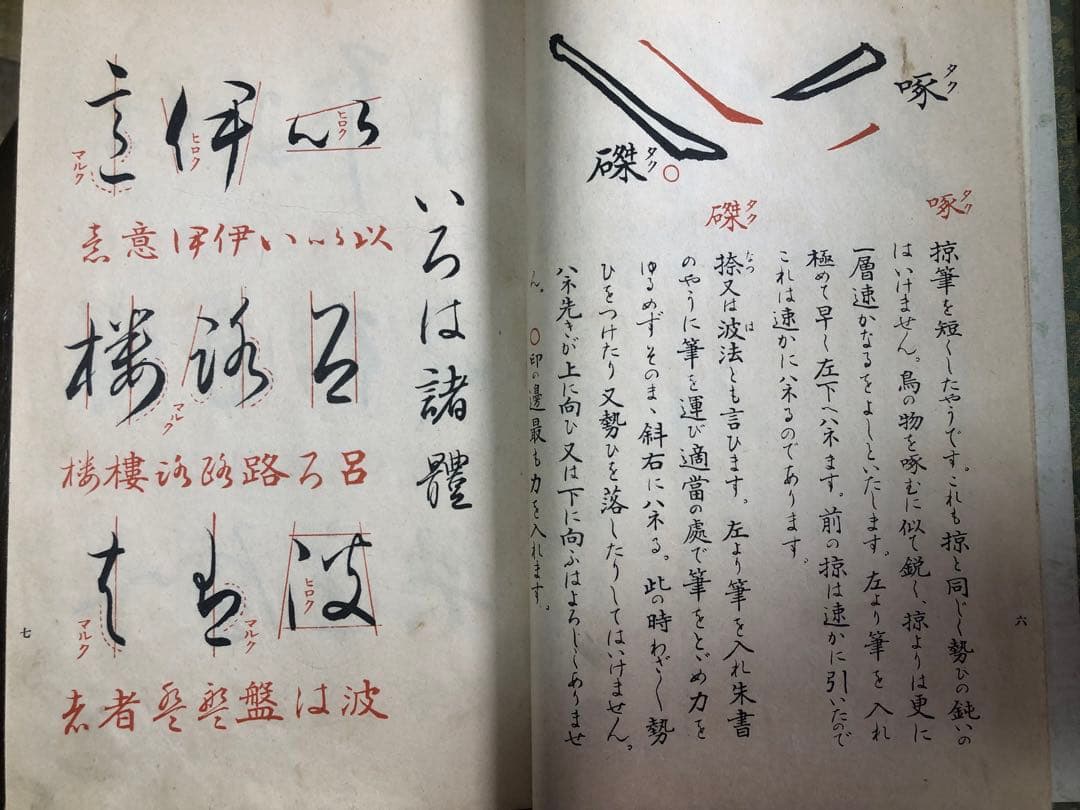 啄
タク
磔
タク
○
啄
タク
掠筆を短くしたやうです。これも掠と同じく勢ひの鈍いの
はいけません。鳥の物を啄むに似て鋭く、掠よりは更に
一層速かなるをよしといたします。左より筆を入れ
極めて早く左下へハネます。前の掠は速かに引いたので
これは速かにハネるのであります。
磔
タク
捺又は波法とも言ひます。左より筆を入れ朱書
なつ
は
のやうに筆を運び適當の處で筆をとゞめ力を
ゆるめずそのまゝ斜右にハネる。此の時わざ〱勢
ひをつけたり又勢ひを落したりしてはいけません。
ハネ先きが上に向ひ又は下に向ふはよろしくありませ
ん。 ○印の邊最も力を入れます。
六
いろは諸體
い 伊 意
ヒロク
ヒロク
マルク
以 い い 伊 伊 意 意
呂 路 楼
マルク
呂 ろ 路 路 路 樓 楼
波 盤 者
ヒロク
マルク
マルク
波 は 盤 盤 盤 者 者
七